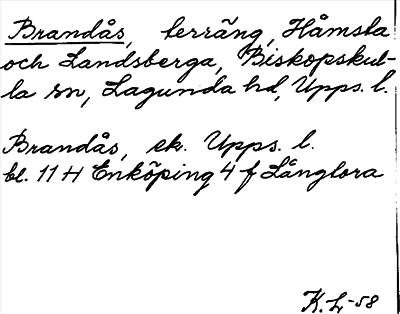 Brandås, terräng, Håmsta
och Landsberga, Biskopskul-
la sn, Lagunda hd, Upps. l.
Brandås, ek. Upps. l.
bl. 11 H Enköping 4 f Långlora
K.L-58